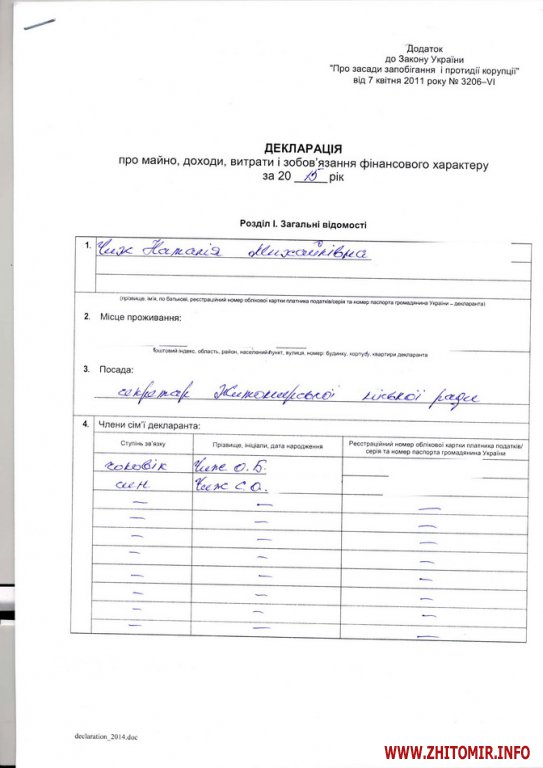 Додаток
до Закону України
"Про засади запобігання і протидії корупції"
від 7 квітня 2011 року № 3206–VI
ДЕКЛАРАЦІЯ
про майно, доходи, витрати і зобов'язання фінансового характеру
за 20 15 рік
Розділ I. Загальні відомості
1. Чиж Наталія Михайлівна
(прізвище, ім'я, по батькові, реєстраційний номер облікової картки платника податків/серія та номер паспорта громадянина України – декларанта)
2. Місце проживання:
поштовий індекс, область, район, населений пункт, вулиця, номер: будинку, корпусу, квартири декларанта
3. Посада:
секретар Житомирської міської ради
4. Члени сім'ї декларанта:
Ступінь зв'язку Прізвище, ініціали, дата народження Реєстраційний номер облікової картки платника податків/
серія та номер паспорта громадянина України
чоловік Чиж О.Б.
син Чиж С.О.
— — —
— — —
— — —
— — —
— — —
— — —
— — —
— — —
declaration_2014.doc
WWW.ZHITOMIR.INFO